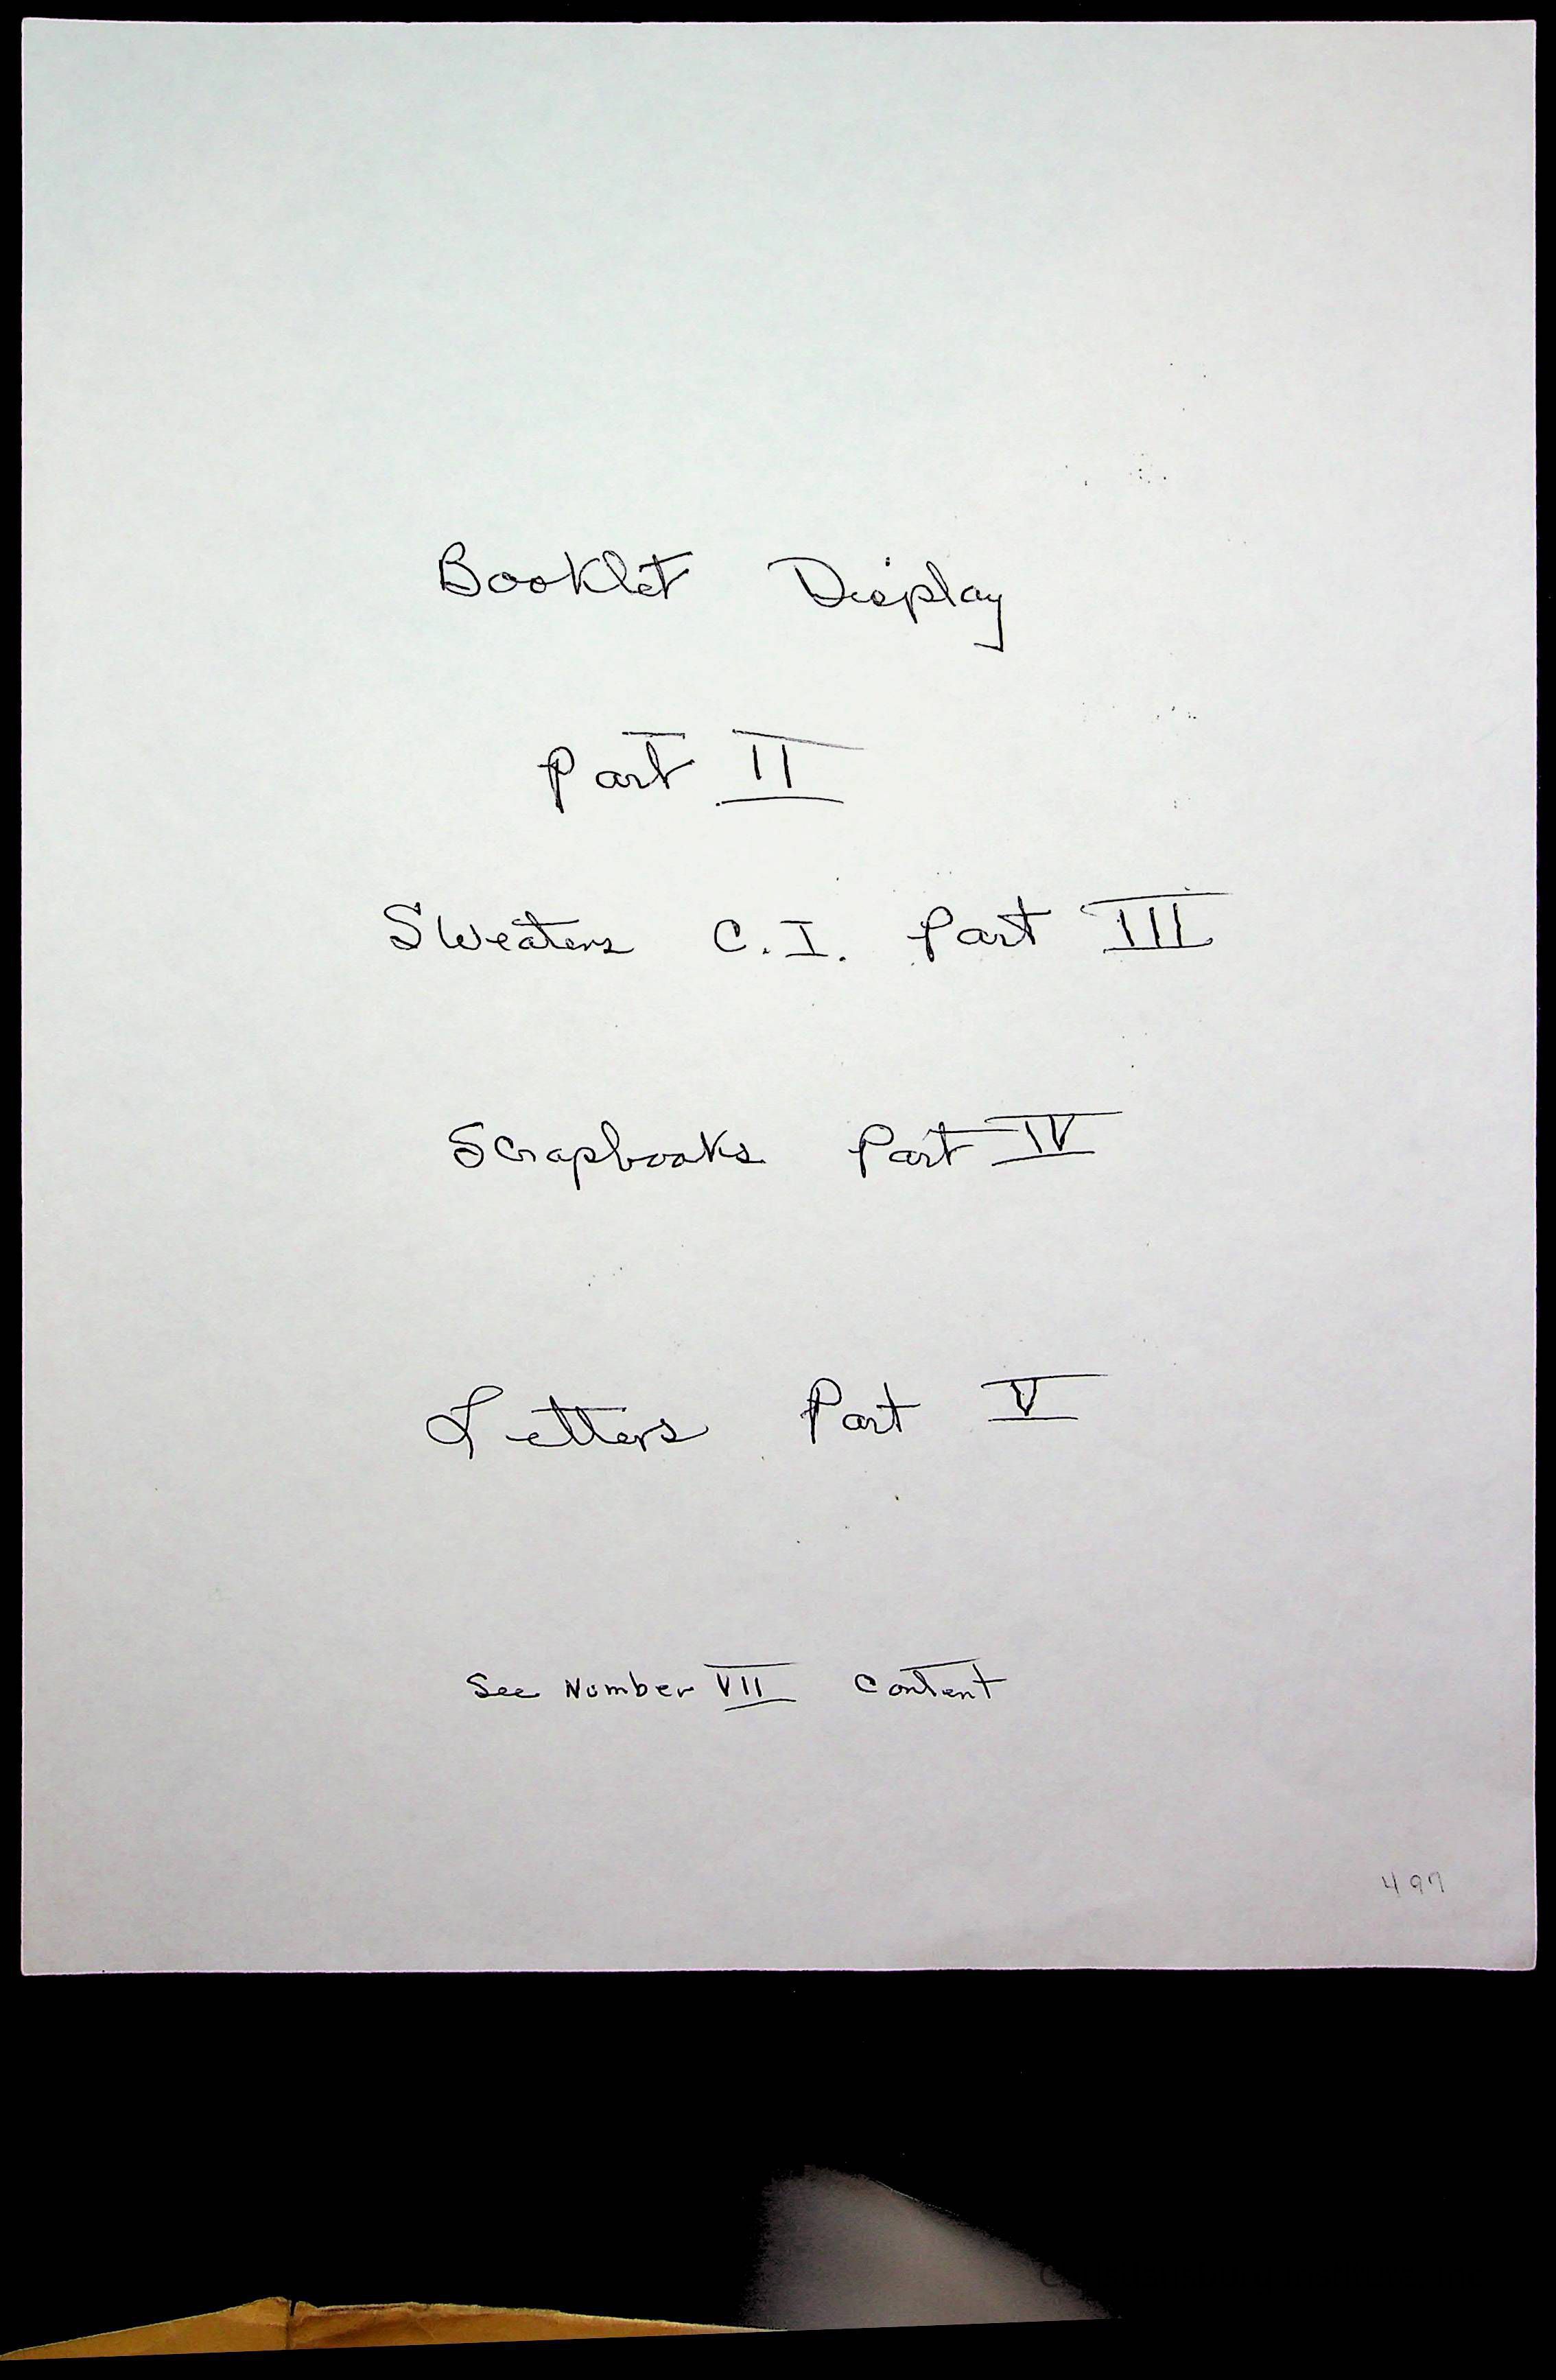 Booklet Display
Part II
Sweaters C.I. Part III
Scrapbooks Part IV
Letters Part V
See Number VII Content
497